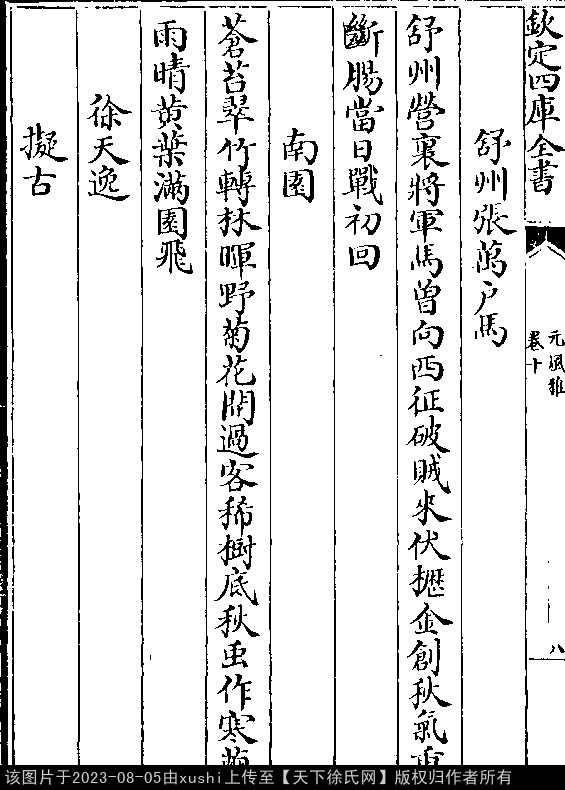 欽定四庫全書
元風雅
卷十
八
舒州張萬户馬
舒州營裏將軍馬曽向西征破賊來伏櫪金創秋氣
斷腸當日戰初回
南園
蒼苔翠竹轉林暉野菊花開過客稀樹底秋虫作寒
雨晴黄葉滿園飛
徐天逸
擬古
该图片于2023-08-05由xushi上传至【天下徐氏网】版权归作者所有